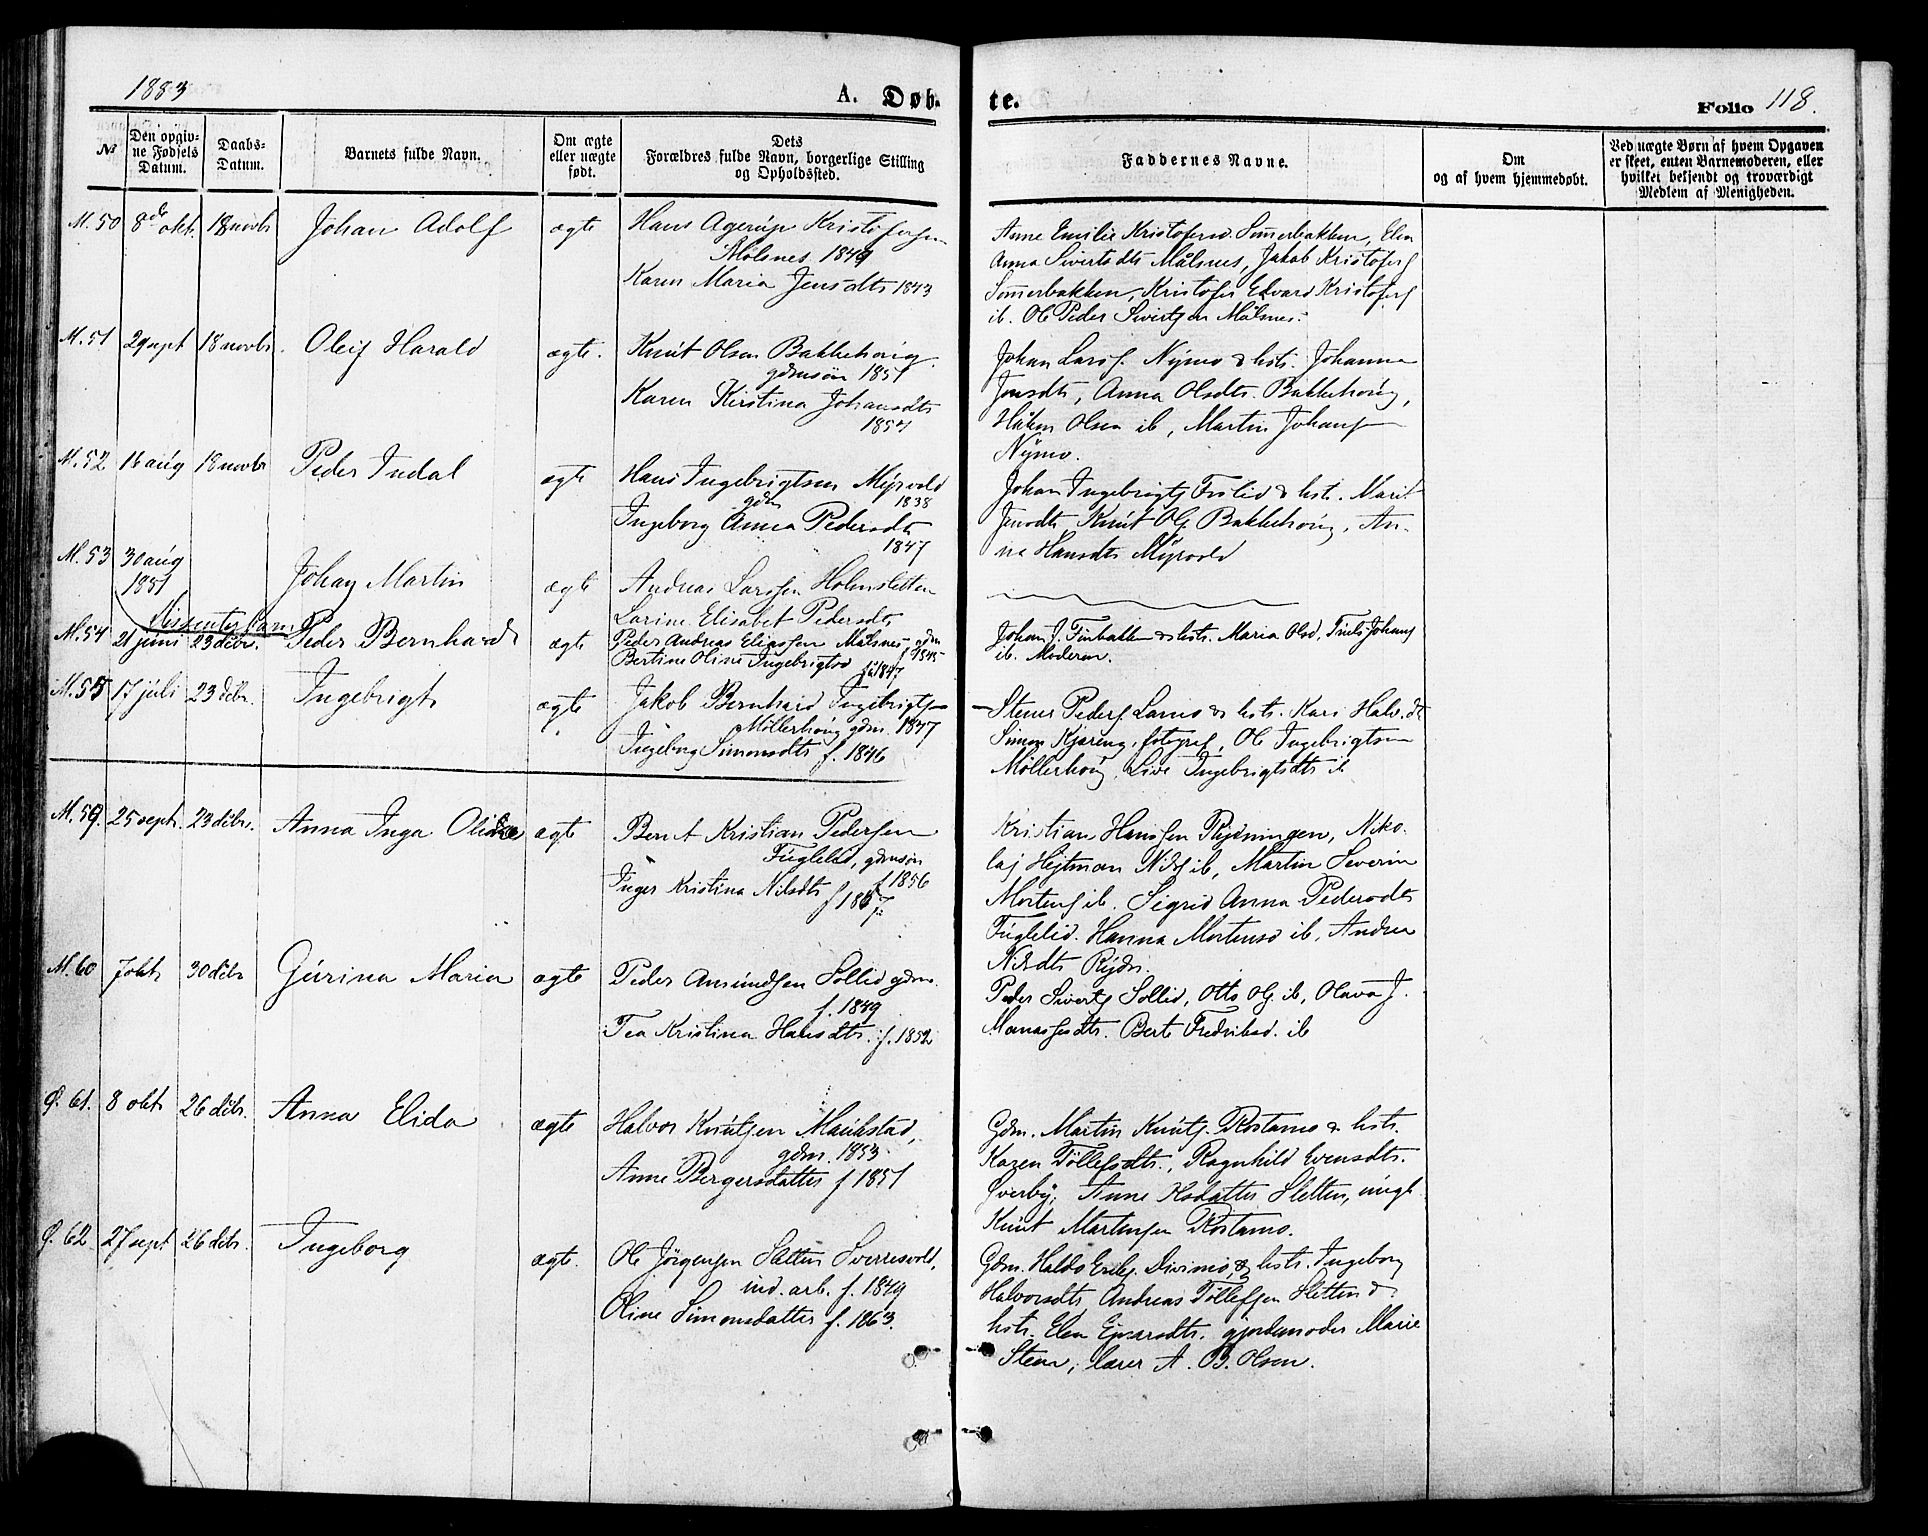 1883
A. Døb-
te.
Folio 118.
№
Den opgiv-
ne Fødsels
Datum.
Daabs-
Datum.
Barnets fulde Navn.
Om ægte
eller uægte
født.
Dets
Forældres fulde Navn, borgerlige Stilling
og Opholdssted.
Faddernes Navne.
Om
og af hvem hjemmedøbt.
Ved uægte Børn af hvem Opgaven
er skeet, enten Barnemoderen, eller
hvilket bekjendt og troværdigt
Medlem af Menigheden.
M. 50 8de okt. 18 novbr Johan Adolf ægte
Hans Agerup Kristofersen
Målsnes 1849
Karen Maria Jensdtr 1843
Anne Emilie Kristofersd. Sommerbakken, Elen
Anna Sivertsdtr Målsnes, Jakob Kristofers
Sommerbakken, Kristofer Edvard Kristofers
ib. Ole Peder Sivertsen Målsnes.
M. 51 29 sept 18 novbr. Oleif Harald ægte.
Knut Olsen Bakkehoug
gdmsøn 1851
Karen Kirstina Johansdtr
1854
Johan Larss. Nymo & hstr. Johanna
Jensdtr, Anna Olsdtr. Bakkehoug,
Håken Olsen ib, Martin Johans
Nymo.
M. 52 16 aug 18 novbr Peder Indal ægte
Hans Ingebrigtsen Myrvold
gdm 1838
Ingeborg Anna Pedersdtr
1847
Johan Ingebrigts & hstr. Marit
Jensdtr, Knut Ols. Bakkehoug, An-
na Hansdtr Myrvold
M. 53 30 aug
1851 Johan Martin ægte
Andreas Larssen Holmsletten
Larine Elisabet Pedersdtr
Dissenterbarn
M. 54 21 juni 23 debr. Peder Bernhard ægte
Peder Andreas Eliassen Målsnes, gdm
1845
Bertine Oline Ingebrigtsd
f. 1847
Johan J. Finbakken & hstr. Maria Olsd, Johans
ib. Moderen.
M. 55 17 juli 23 debr. Ingebrigt ægte
Jakob Bernhard Ingebrigts
Møllerhoug gdm. 1847
Ingebog Simonsdtr f. 1846
Stener Peders. & hstr. Kari Halv.dt
Simon Kjæreng, fotograf, Ole Ingebrigtsen
Møllerhoug, Live Ingebrigtsdtr ib
M. 59. 25 sept. 23 debr. Anna Inga ægte
Bernt Kristian Pedersen
Fuglelid, gdmsøn
f 1856
Inger Kristina Nilsdtr
Kristian Hanssen Rydningen, Niko-
laj Hejtman Nils. ib, Martin Severin
Mortens. ib. Sigrid Anna Pedersdtr
Fuglelid. Hanna Mortensd ib, Andrea
Nilsdtr Rydn.
M. 60 7 okt 30 debr Gurina Maria ægte
Peder Amundsen Sollid gdm.
f. 1849
Tea Kristina Hansdtr. f. 1852
Peder Siverts Sollid, Otto Ols. ib, Olava J.
Manassesdtr. Berte Fredriksd. ib
Ø. 61. 8 okt 26 debr. Anna Elida ægte
Halvor Knutsen Maukstad,
gdm. 1853
Anne Bergersdatter f 1851
Gdm. Martin Knuts. Rostamo & hstr.
Karen Tollefsdtr., Ragnhild Evensdtr.
Øverby, Anne Sletten, ungk
Knut Martinsen Rostamo.
Ø. 62. 27 sept 26 debr. Ingeborg ægte.
Ole Jørgensen Sletten Sverresvold,
ind. arb. f. 1849
Oline Simonsdatter f. 1863.
Gdm. Haldo Eriks. Divimo, & hstr. Ingeborg
Halvorsdtr, Andreas Tollefsen Sletten &
hstr. Elen Ejnarsdtr. gjordemoder Marie
Steen, lærer A. B. Olsen.